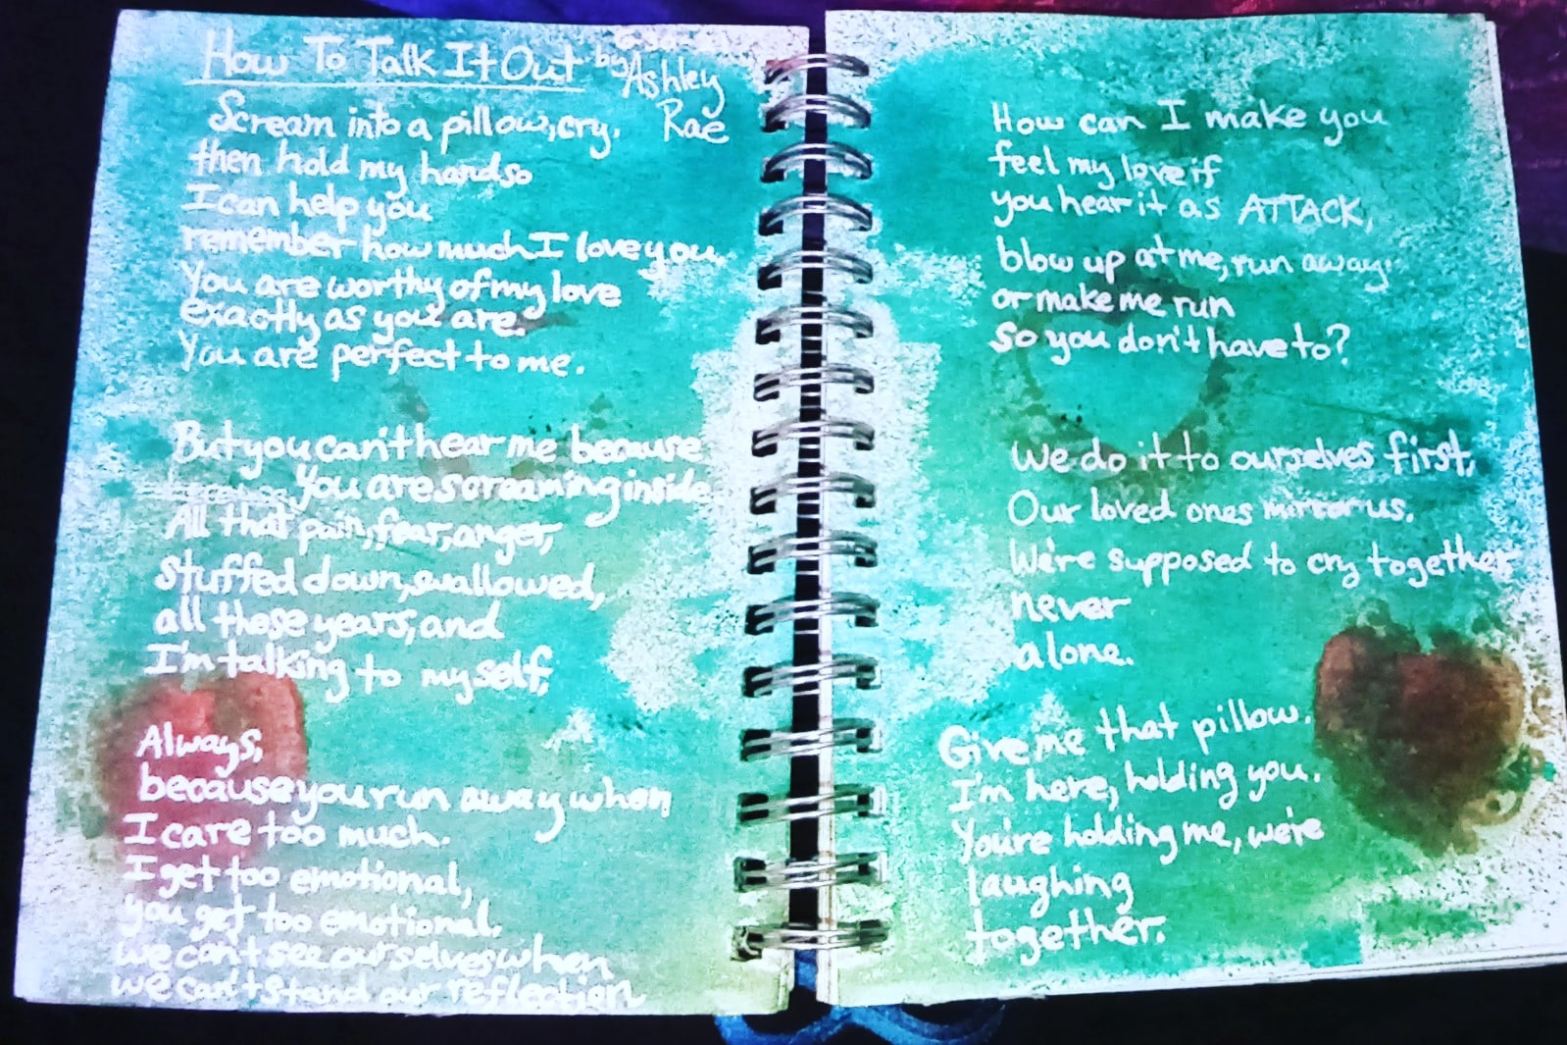 How To Talk It Out by Ashley Rae
Scream into a pillow, cry.
then hold my hand so
I can help you
remember how much I love you.
You are worthy of my love
exactly as you are.
You are perfect to me.
But you can't hear me because
you are screaming inside
All that pain, fear, anger,
stuffed down, swallowed,
all those years, and
I'm talking to myself.
Always,
because you run away when
I care too much.
I get too emotional,
you get too emotional.
we can't see ourselves when
we can't stand our reflection
How can I make you
feel my love if
you hear it as ATTACK,
blow up at me, run away
or make me run
so you don't have to?
We do it to ourselves first.
Our loved ones mirror us.
We're supposed to cry together
never
alone.
Give me that pillow.
I'm here, holding you.
You're holding me, we're
laughing
together.